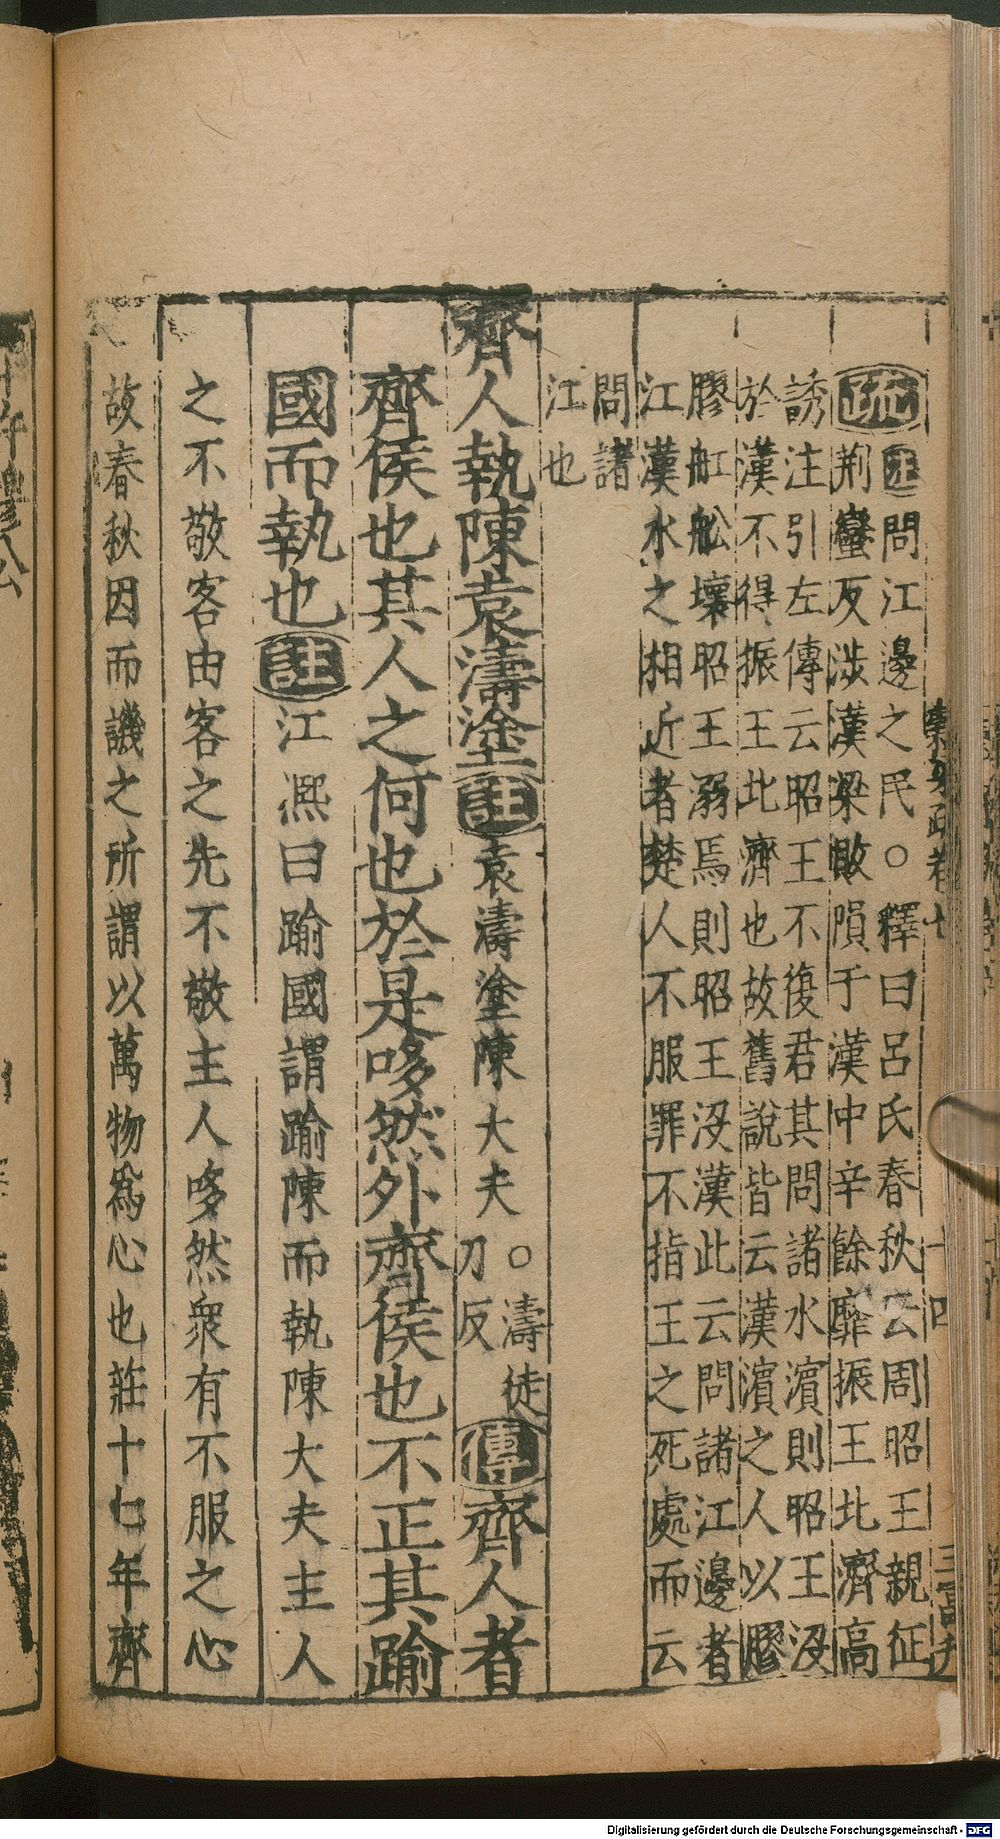 疏
注問江邊之民○釋曰呂氏春秋云周昭王親征
荆蠻反涉漢梁敗隕于漢中辛餘靡振王北濟高
誘注引左傳云昭王不復君其問諸水濱則昭王沒
於漢不得振王北濟也故舊說皆云漢濱之人以膠
膠舡舩壞昭王溺焉則昭王沒漢此云問諸江邊者
江漢水之相近者楚人不服罪不指王之死處而云
問諸
江也
齊人執陳袁濤塗註袁濤塗陳大夫○濤徒刀反傳齊人者
齊侯也其人之何也於是哆然外齊侯也不正其踰
國而執也註江熈曰踰國謂踰陳而執陳大夫主人
之不敬客由客之先不敬主人哆然衆有不服之心
故春秋因而譏之所謂以萬物爲心也莊十七年齊
Digitalisierung gefördert durch die Deutsche Forschungsgemeinschaft - DFG